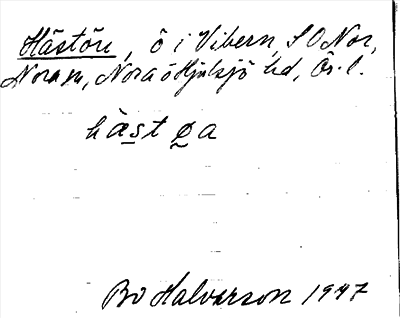 Hästön, ö i Vibern, S O Nor,
Nora sn, Nora o Hjulsjö hd, Ör. l.
häst øa
Bo Halvarson 1947